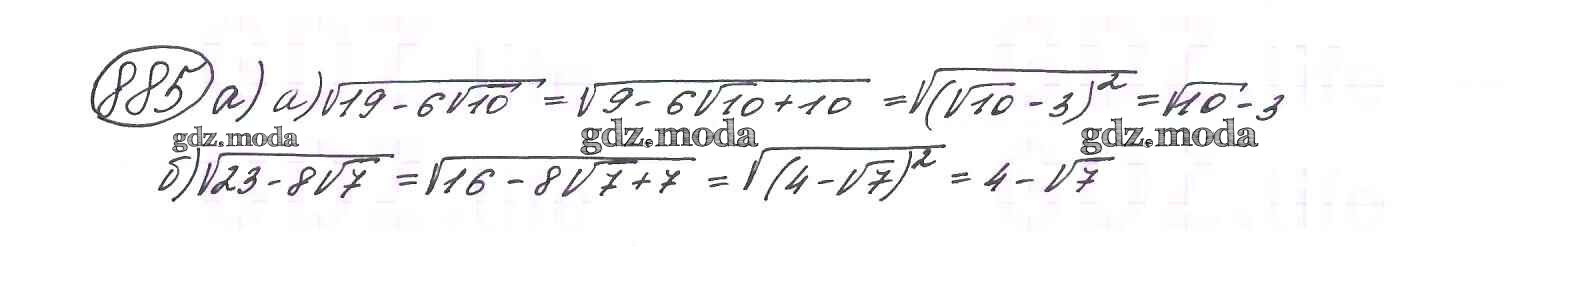 885 а) а) √19 - 6√10 = √9 - 6√10 + 10 = √(√10 - 3)² = √10 - 3
gdz.moda gdz.moda gdz.moda
б) √23 - 8√7 = √16 - 8√7 + 7 = √(4 - √7)² = 4 - √7